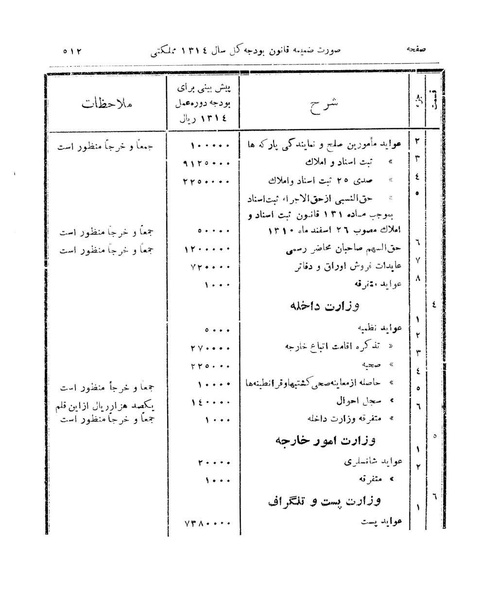 صفحه صورت ضمیمه قانون بودجه کل سال ۱۳۱۴ مملکتی ۵۱۲
قسمت جزء شرح پیش بینی برای بودجه دوره عمل ۱۳۱٤ ریال ملاحظات
۲ عواید مأمورین صلح و نمایندگی پارکه ها ۱۰۰۰۰۰ جمعاً و خرجاً منظور است
۳ » ثبت اسناد و املاك ۹۱۲۵۰۰۰
٤ » صدی ۲۵ ثبت اسناد و املاك ۲۲۵۰۰۰۰
۵ حق‌النسبی از حق‌الاجراء ثبت اسناد
بموجب ماده ۱۳۱ قانون ثبت اسناد و
املاك مصوب ۲۶ اسفند ماه ۱۳۱۰ ۵۰۰۰۰ جمعاً و خرجاً منظور است
۶ حق‌السهم صاحبان محاضر رسمی ۱۲۰۰۰۰۰ جمعاً و خرجاً منظور است
۷ عایدات فروش اوراق و دفاتر ۷۲۰۰۰۰
۸ عواید متفرقه ۱۰۰۰
٤ وزارت داخله
۱ عواید نظمیه ۵۰۰۰
۲ » تذکره اقامت اتباع خارجه ۲۷۰۰۰۰
۳ » صحیه ۲۲۵۰۰۰
٤ » حاصله از معاینه صحی کشتیها و قرانطینه‌ها ۱۰۰۰۰ جمعاً و خرجاً منظور است
۵ » سجل احوال ۱٤۰۰۰۰ یکصد هزار ریال از این قلم
۶ » متفرقه وزارت داخله ۱۰۰۰ جمعاً و خرجاً منظور است
۵ وزارت امور خارجه
۱ عواید شانسلری ۲۰۰۰۰
۲ » متفرقه ۱۰۰۰
۶ وزارت پست و تلگراف
۱ عواید پست ۷۳۸۰۰۰۰